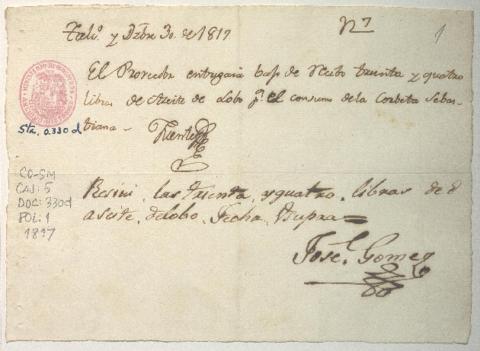 y Dzbre 30. de 1817
Nº 7
1
El Provedor entregara bajo de Recibo treinta y quatro
libras de Azeite de Lobo pª. el consumo de la Corbeta Sebas-
tiana-
Fuente
Sta. 0.330d
CO-SM
CAJ: 5
DOC: 330d
FOL: 1
1817
Recivi las treinta y quatro libras de
aseite de lobo. Fecha Vt Supra
Jose L Gomez